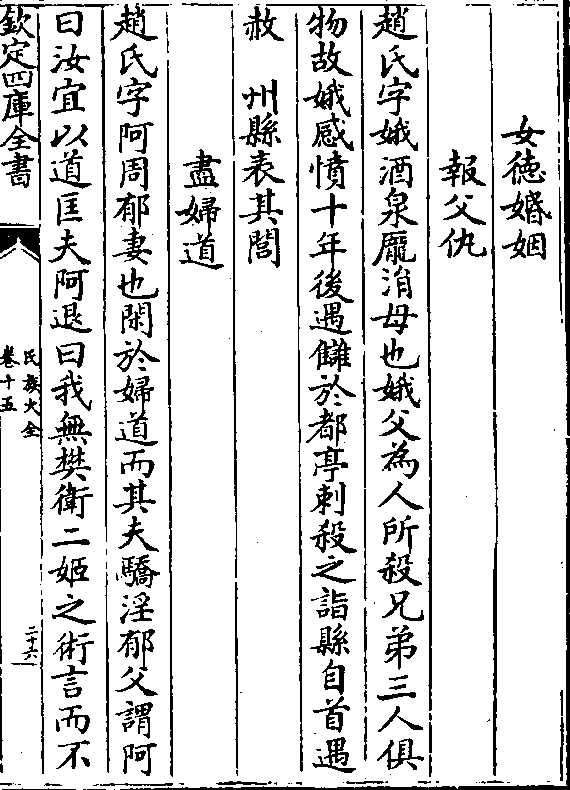 女徳婚姻
報父仇
趙氏字娥酒泉龎淯母也娥父為人所殺兄弟三人俱
物故娥感憤十年後遇讎於都亭刺殺之詣縣自首遇
赦 州縣表其閭
盡婦道
趙氏字阿周郁妻也閑於婦道而其夫驕淫郁父謂阿
曰汝宜以道匡夫阿退曰我無樊衛二姬之術言而不
欽定四庫全書
氏族大全
卷十五
二十六